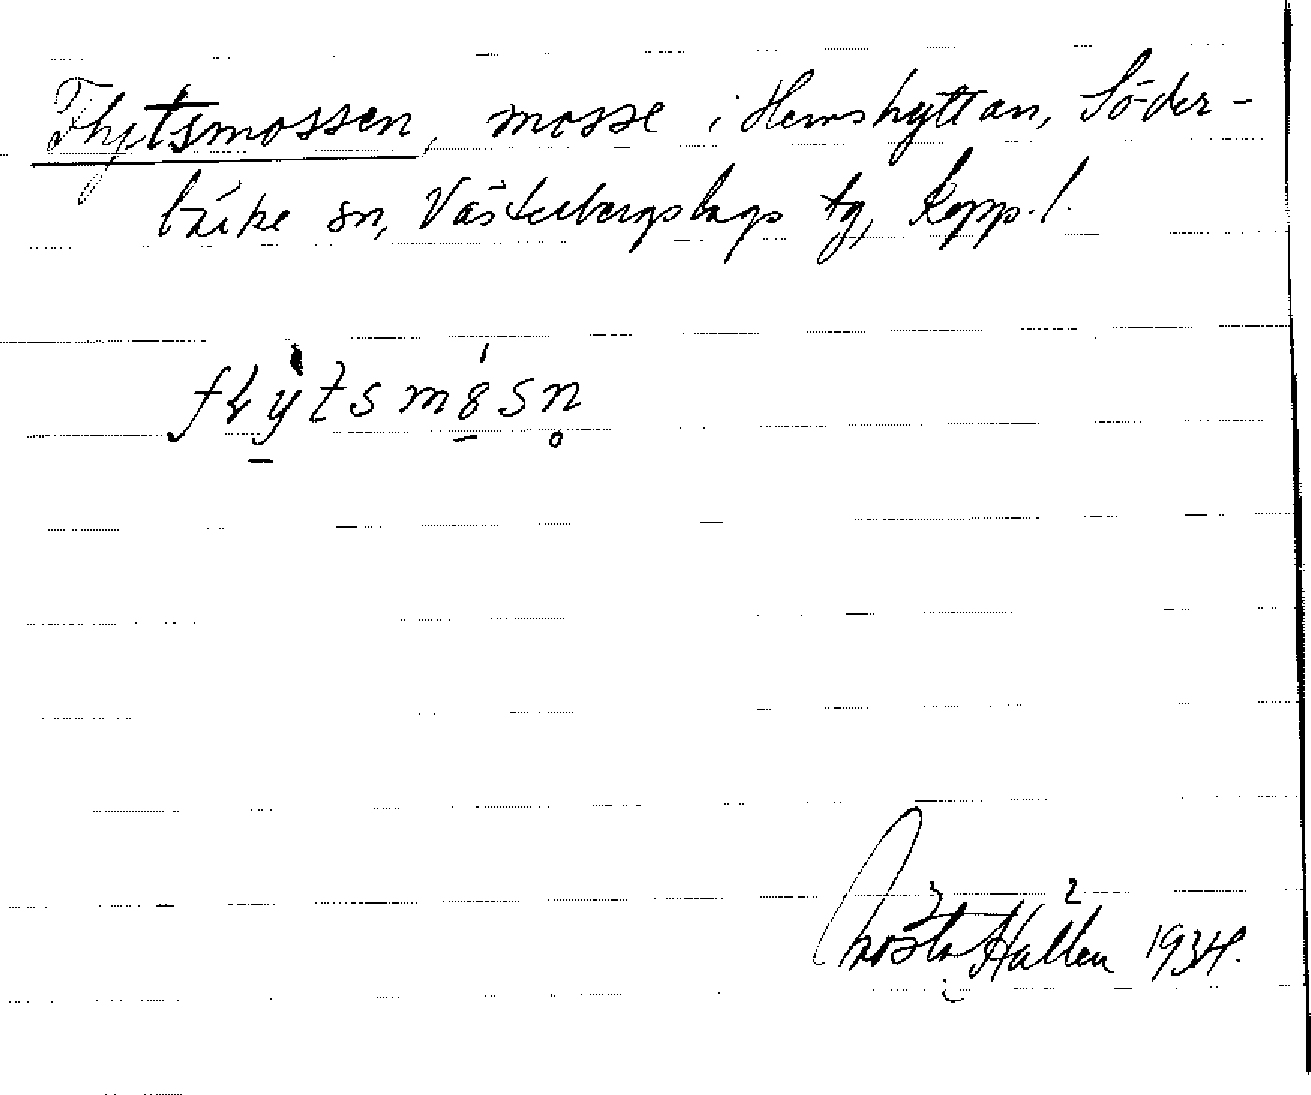 Flytsmossen, mosse i Hemshyttan, Söder-
bärke sn, Västerbergslags tg, Kopp. l.
Gösta Hallén 1934.